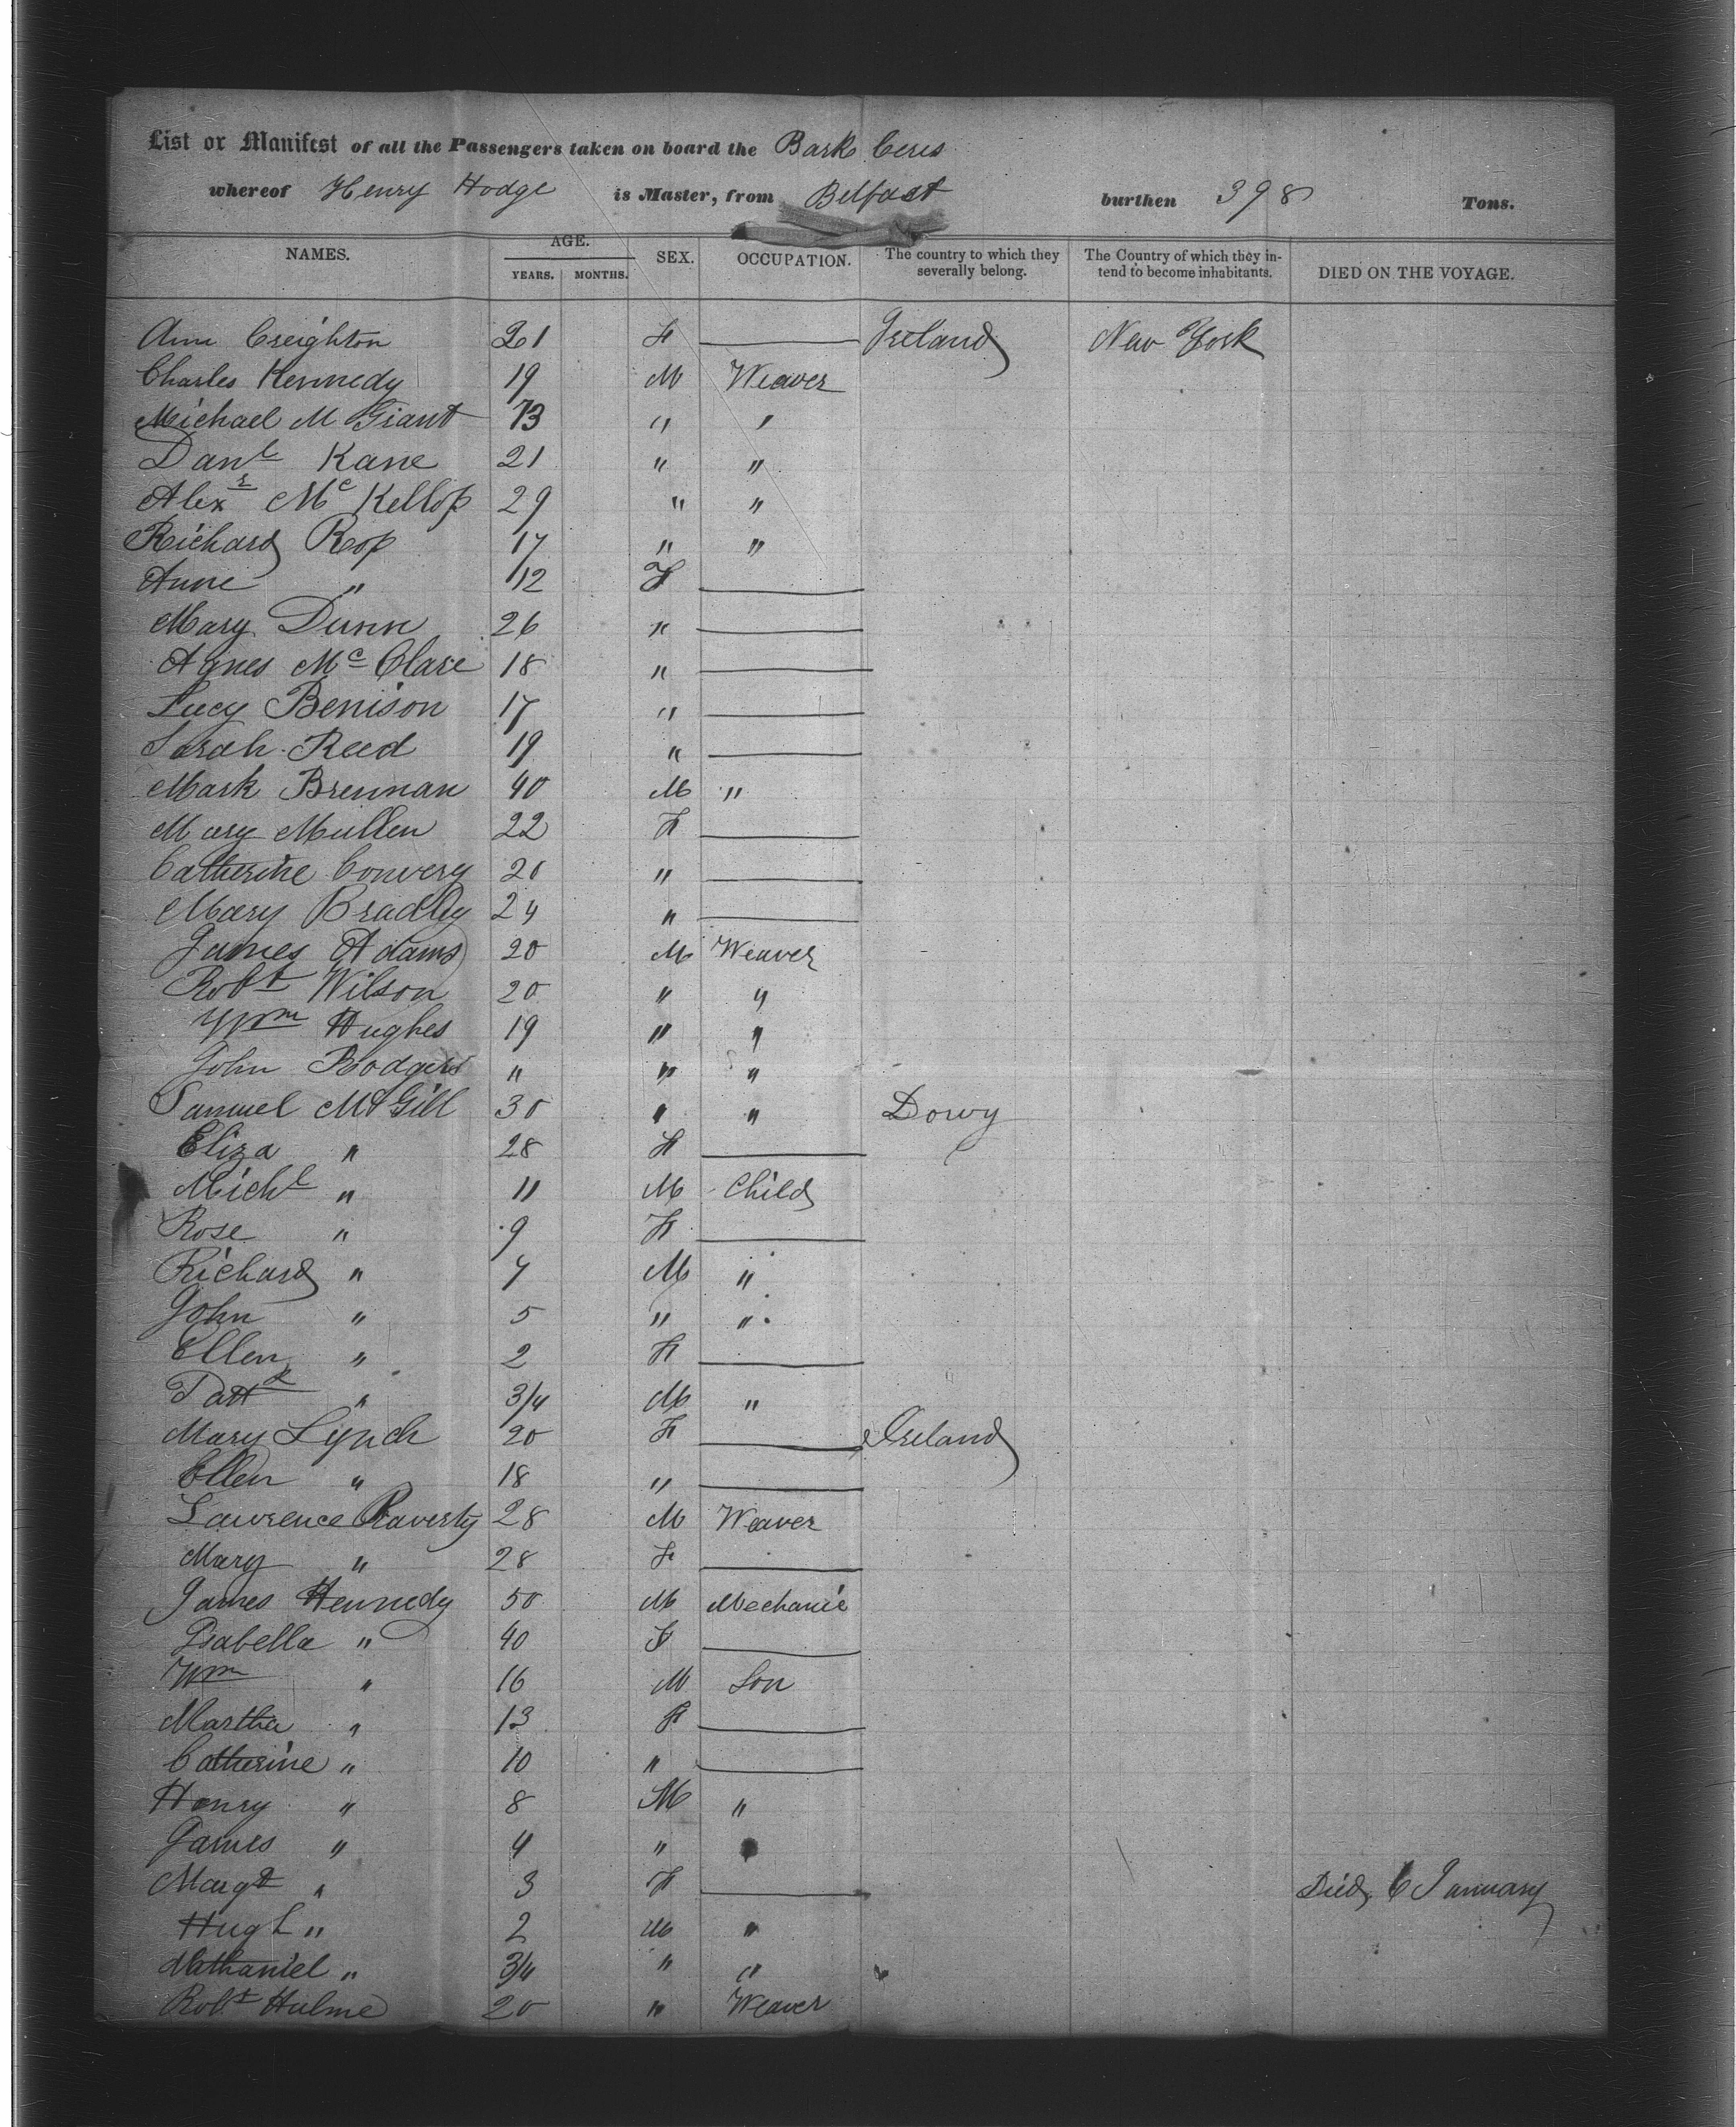 List or Manifest of all the Passengers taken on board the Bark Ceres
whereof Henry Hodge is Master, from Belfast burthen 398 Tons.
NAMES. AGE. YEARS. MONTHS. SEX. OCCUPATION. The country to which they severally belong. The Country of which they intend to become inhabitants. DIED ON THE VOYAGE.
Ann Creighton 21 F Ireland New York
Charles Kennedy 19 M Weaver
Michael M Giant 73 " "
Danl Kane 21 " "
Alexr Mc Kellop 29 " "
Richard Rop 17 " "
Anne " 12 F
Mary Dunn 26 "
Agnes Mc Clare 18 "
Lucy Benison 17 "
Sarah Reed 19 "
Mark Brennan 40 M "
Mary Mullen 22 F
Catherine Convery 20 "
Mary Bradley 24 "
James Adams 20 M Weaver
Robt Wilson 20 " "
Wm Hughes 19 " "
John Rodgers " " "
Samuel McGill 30 " "
Eliza " 28 F
Michl " 11 M Child
Rose " 9 F
Richard " 7 M "
John " 5 " "
Ellen " 2 F
Patk " 3/4 M "
Mary Lynch 20 F Ireland
Ellen " 18 "
Lawrence Raverty 28 M Weaver
Mary " 28 F
James Kennedy 50 M Mechanic
Isabella " 40 F
Wm " 16 M Son
Martha " 13 F
Catherine " 10 "
Henry " 8 M "
James " 4 "
Margt " 3 F Died 6 January
Hugh " 2 M "
Nathaniel " 3/4 " "
Robt Hulme 20 " Weaver